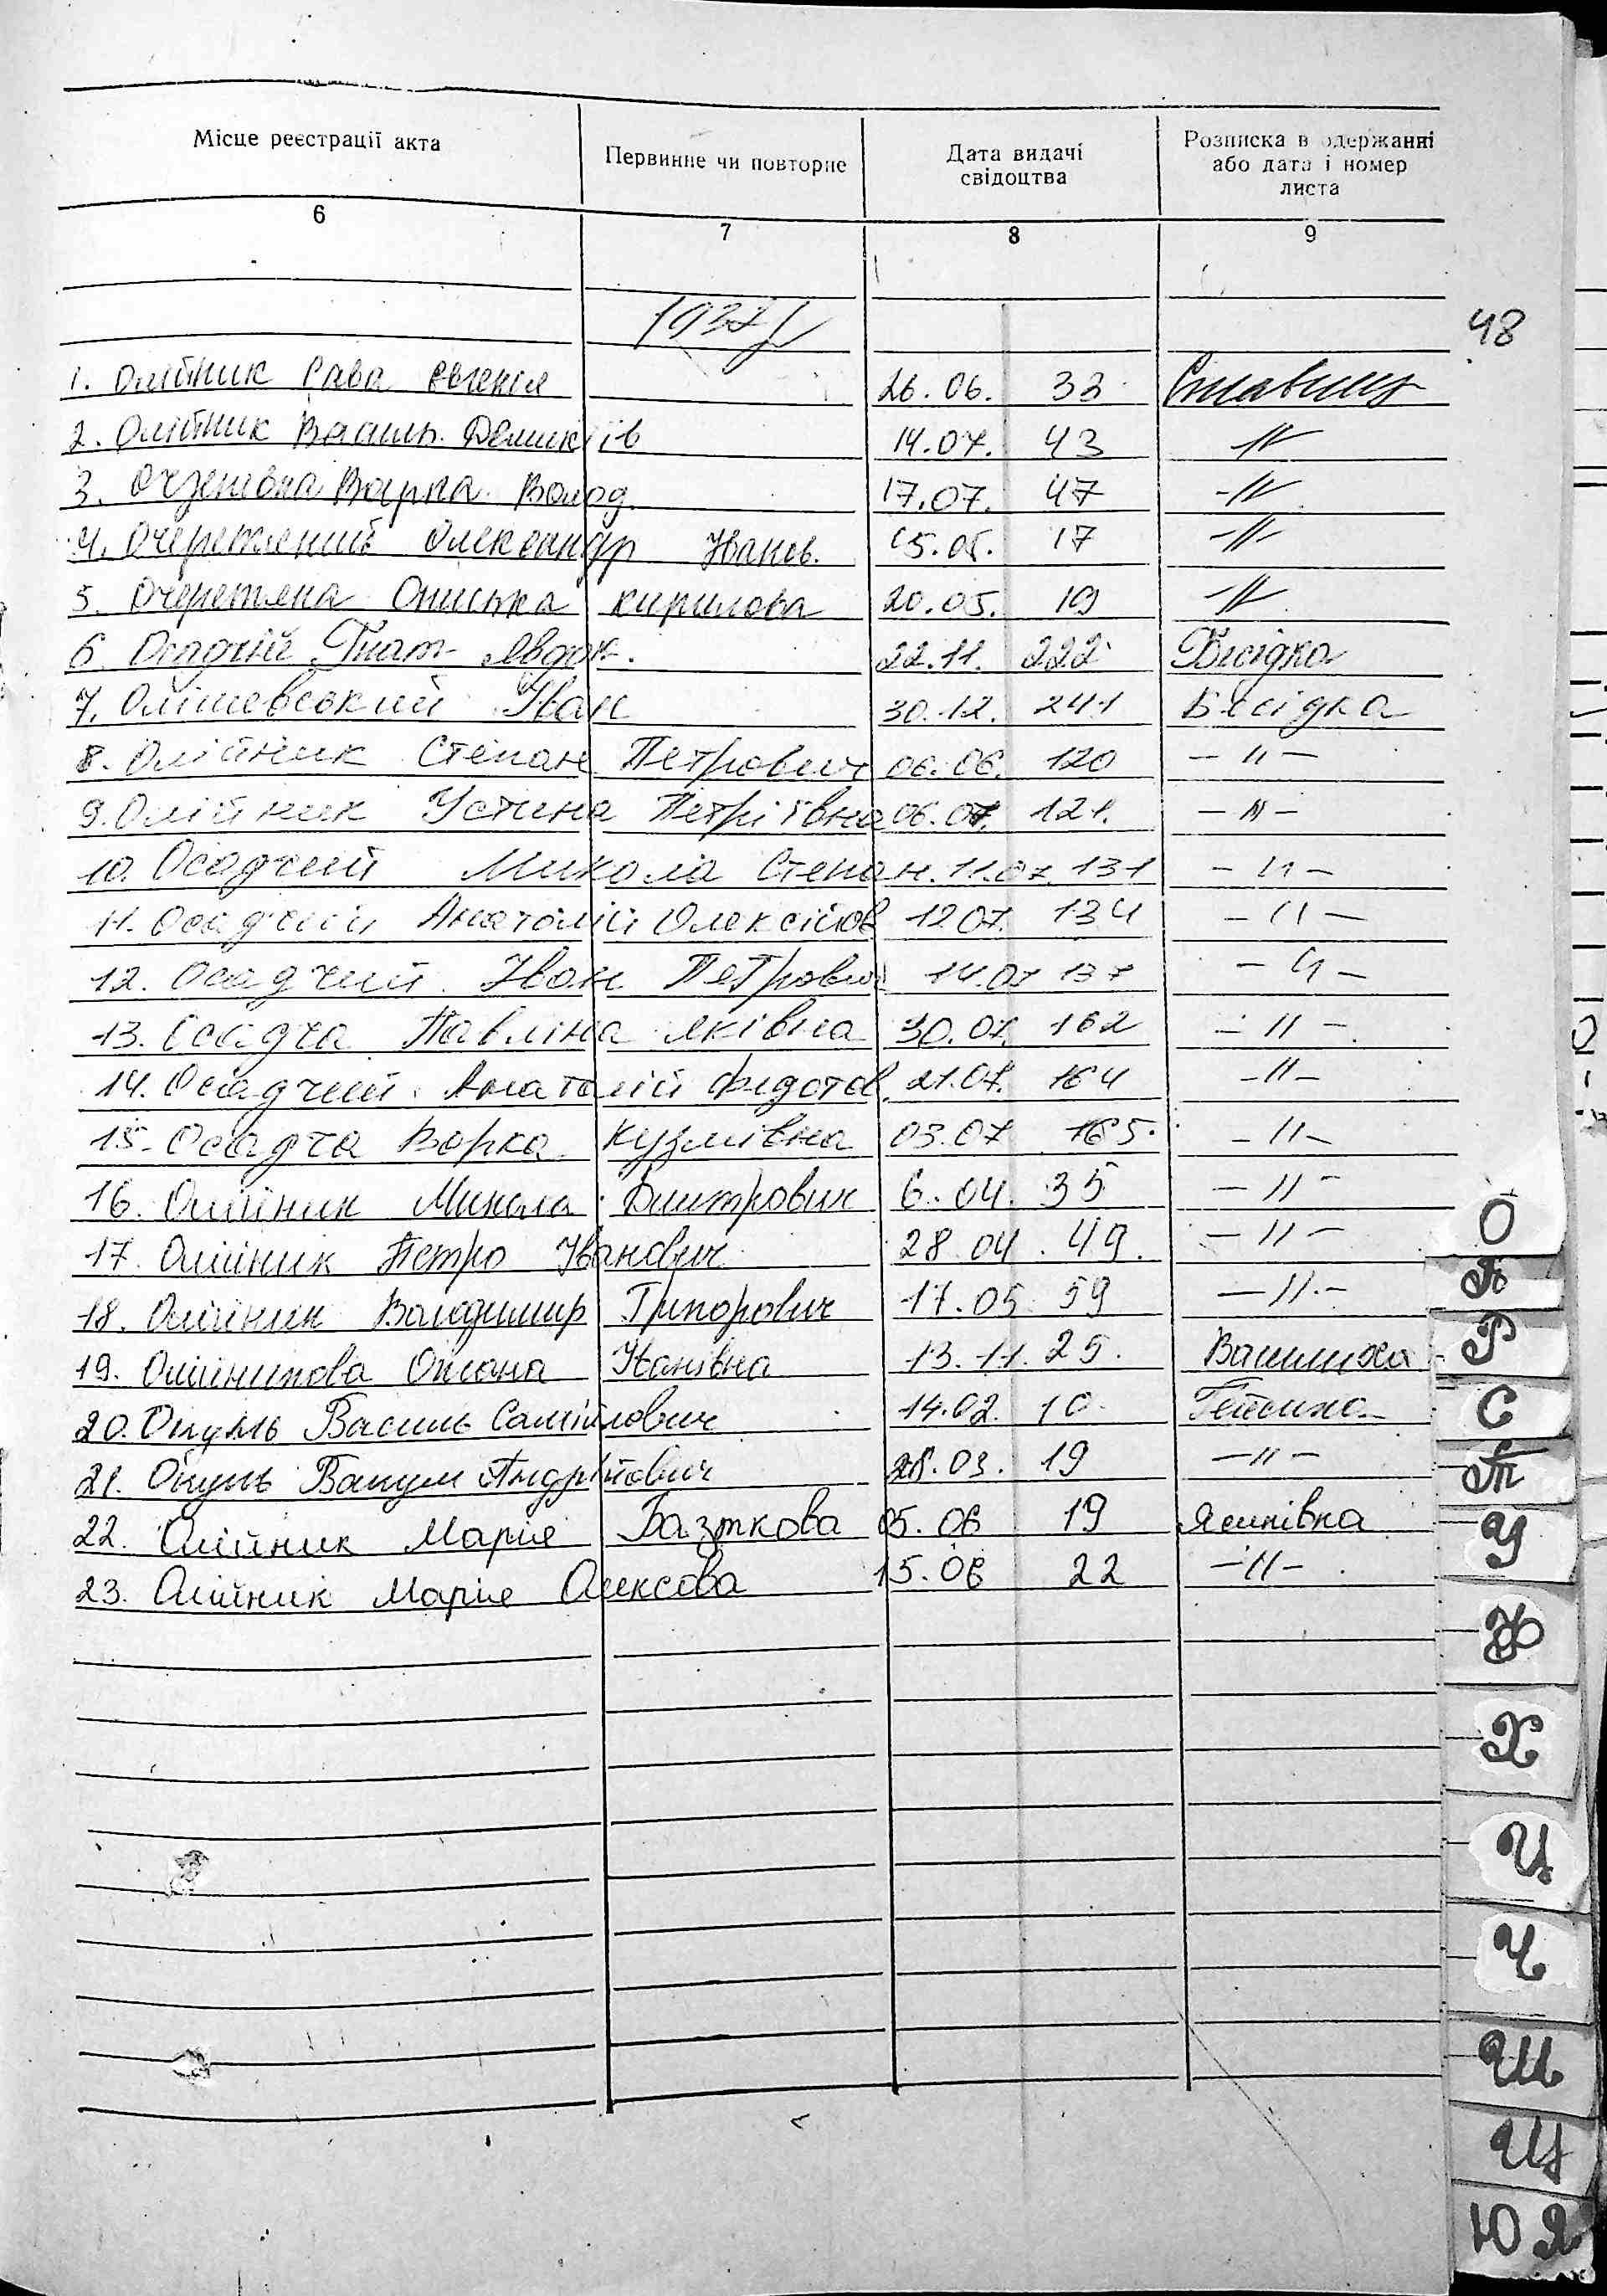 Місце реєстрації акта
Первинне чи повторне
Дата видачі
свідоцтва
Розписка в одержанні
або дата і номер
листа
6 7 8 9
48
1. Олійник Сава 26.06. 33
2. Олійник Василь 14.07. 43 -//-
3. Волод. 17.07. 47 -//-
4. Олександр Іванов. 17 -//-
5. Очеретяна Килилова 20.05. 19 -//-
6 Осадчій Гнат Явдок. 22.11. 222 Бесідка
7. Олішевський Іван 30.12. 241 Бесідка
8. Олійник Степан Петрович 06.06. 120 -//-
9. Олійник Устина Петріївна 06.07. 121. -//-
10. Осадчий Микола Степан. 11.07. 131 -//-
11. Осадчий Анатолій Олексійов 12.07. 134 -//-
12. Осадчий Іван Петрович 14.07 137 -//-
13. Осадча Павліна Яківна 30.07. 162 -//-
14. Осадчий Анатолій Федотов. 21.07. 164 -//-
15. Осадча Ворка Кузмівна 03.07 165. -//-
16. Олійник Микола Дмитрович 6.04. 35 -//-
17. Олійник Петро Іванович 28.04. 49. -//-
18. Олійник Володимир Григорович 17.05 59 -//-
19. Олійникова Оксана Іванівна 13.11. 25. Василиха
20. Окунь Василь Самійлович 14.02. 10. Гейсиха
21. Окунь Вакум Андрійович 28.03. 19 -//-
22. Олійник Марія 05.06 19 Ясинівка
23. Олійник Марія Олексова 15.06 22 -//-
О
П
Р
С
Т
У
Ф
Х
Ц
Ч
Ш
Щ
Ю Я